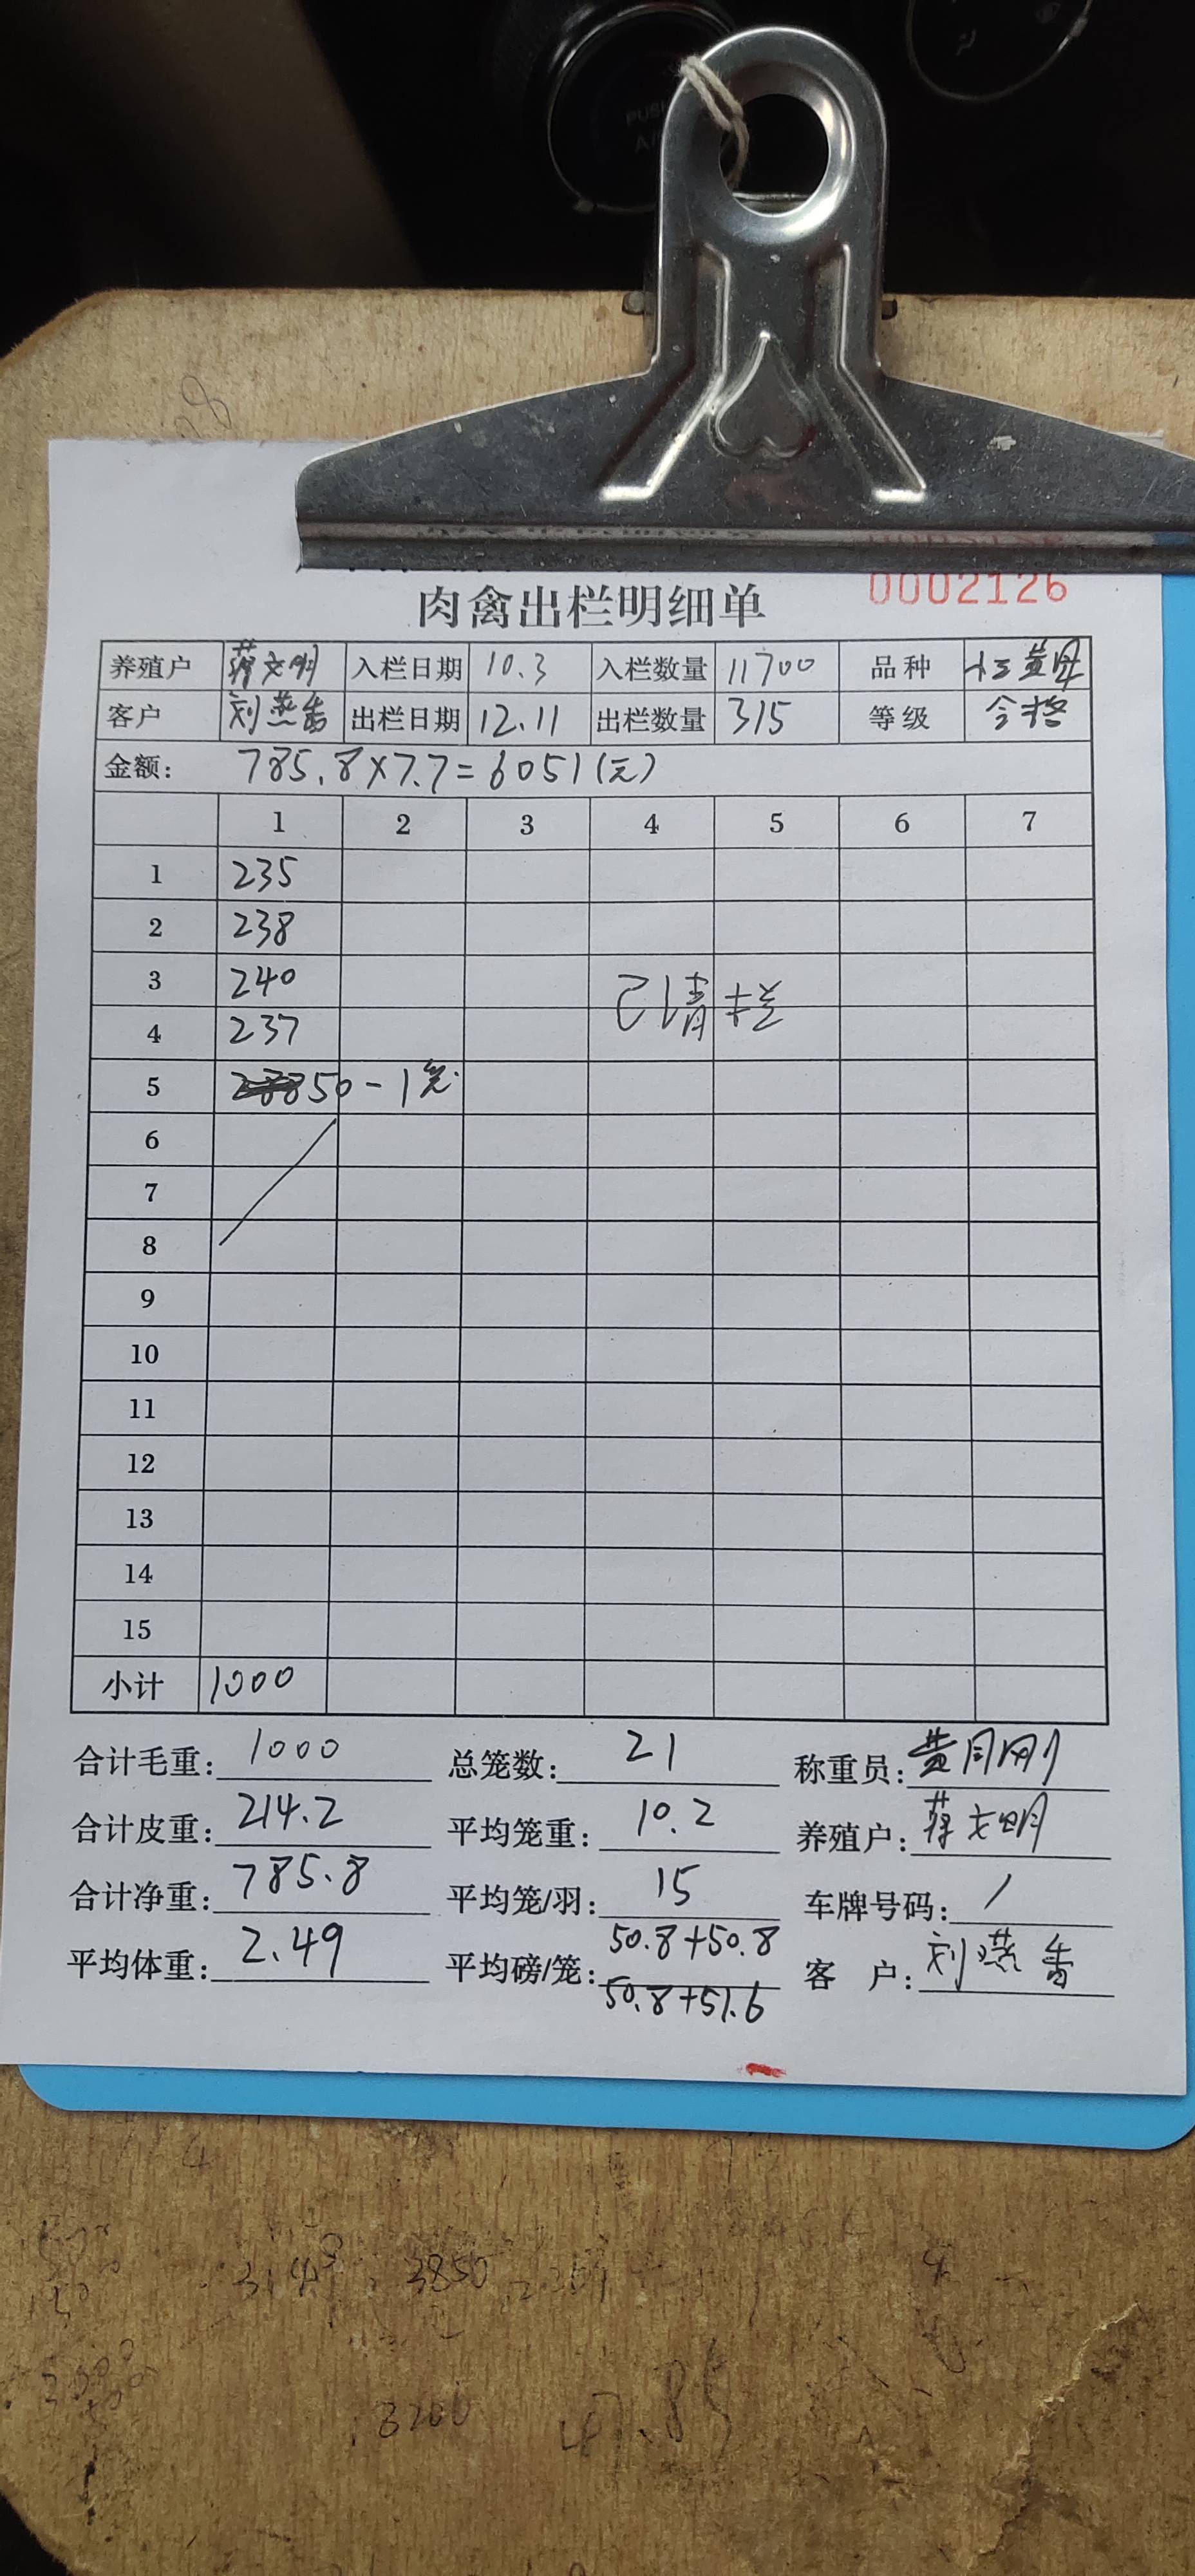 PUSH
肉禽出栏明细单 0002126
养殖户 蒋文明 入栏日期 10.3 入栏数量 11700 品种 小三黄母
客户 刘燕香 出栏日期 12.11 出栏数量 315 等级 合格
金额: 785.8×7.7=6051(元)
1 2 3 4 5 6 7
1 235
2 238
3 240
已清栏
4 237
5 50-1笼
6
7
8
9
10
11
12
13
14
15
小计 1000
合计毛重: 1000 总笼数: 21 称重员:
合计皮重: 214.2 平均笼重: 10.2 养殖户: 蒋文明
合计净重: 785.8 平均笼/羽: 15 车牌号码: /
平均体重: 2.49 平均磅/笼: 50.8+50.8 客 户: 刘燕香
50.8+51.6
3850
3200
47.85